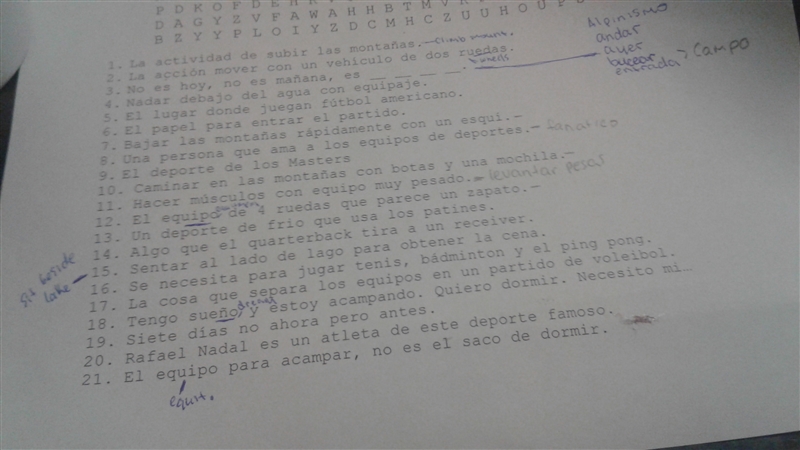 P D K O F D E
D A G Y Z V F A W A H H B T M V
B Z Y Y P L O I Y Z D C M H C Z U U H O U
1. La actividad de subir las montañas. - climb mount.
Alpinismo
2. La acción mover con un vehículo de dos ruedas.
wheels
andar
3. No es hoy, no es mañana, es __ __ __ __.
ayer
4. Nadar debajo del agua con equipaje.
bucear
5. El lugar donde juegan fútbol americano.
entrada > Campo
6. El papel para entrar el partido.
7. Bajar las montañas rápidamente con un esquí. -
8. Una persona que ama a los equipos de deportes. - fanatico
9. El deporte de los Masters
10. Caminar en las montañas con botas y una mochila. -
11. Hacer músculos con equipo muy pesado. - levantar pesas
12. El equipo de 4 ruedas que parece un zapato. -
13. Un deporte de frio que usa los patines.
14. Algo que el quarterback tira a un receiver.
sit beside
lake - 15. Sentar al lado de lago para obtener la cena.
16. Se necesita para jugar tenis, bádminton y el ping pong.
17. La cosa que separa los equipos en un partido de voleibol.
18. Tengo sueño, y estoy acampando. Quiero dormir. Necesito mi…
19. Siete días no ahora pero antes.
20. Rafael Nadal es un atleta de este deporte famoso.
21. El equipo para acampar, no es el saco de dormir.